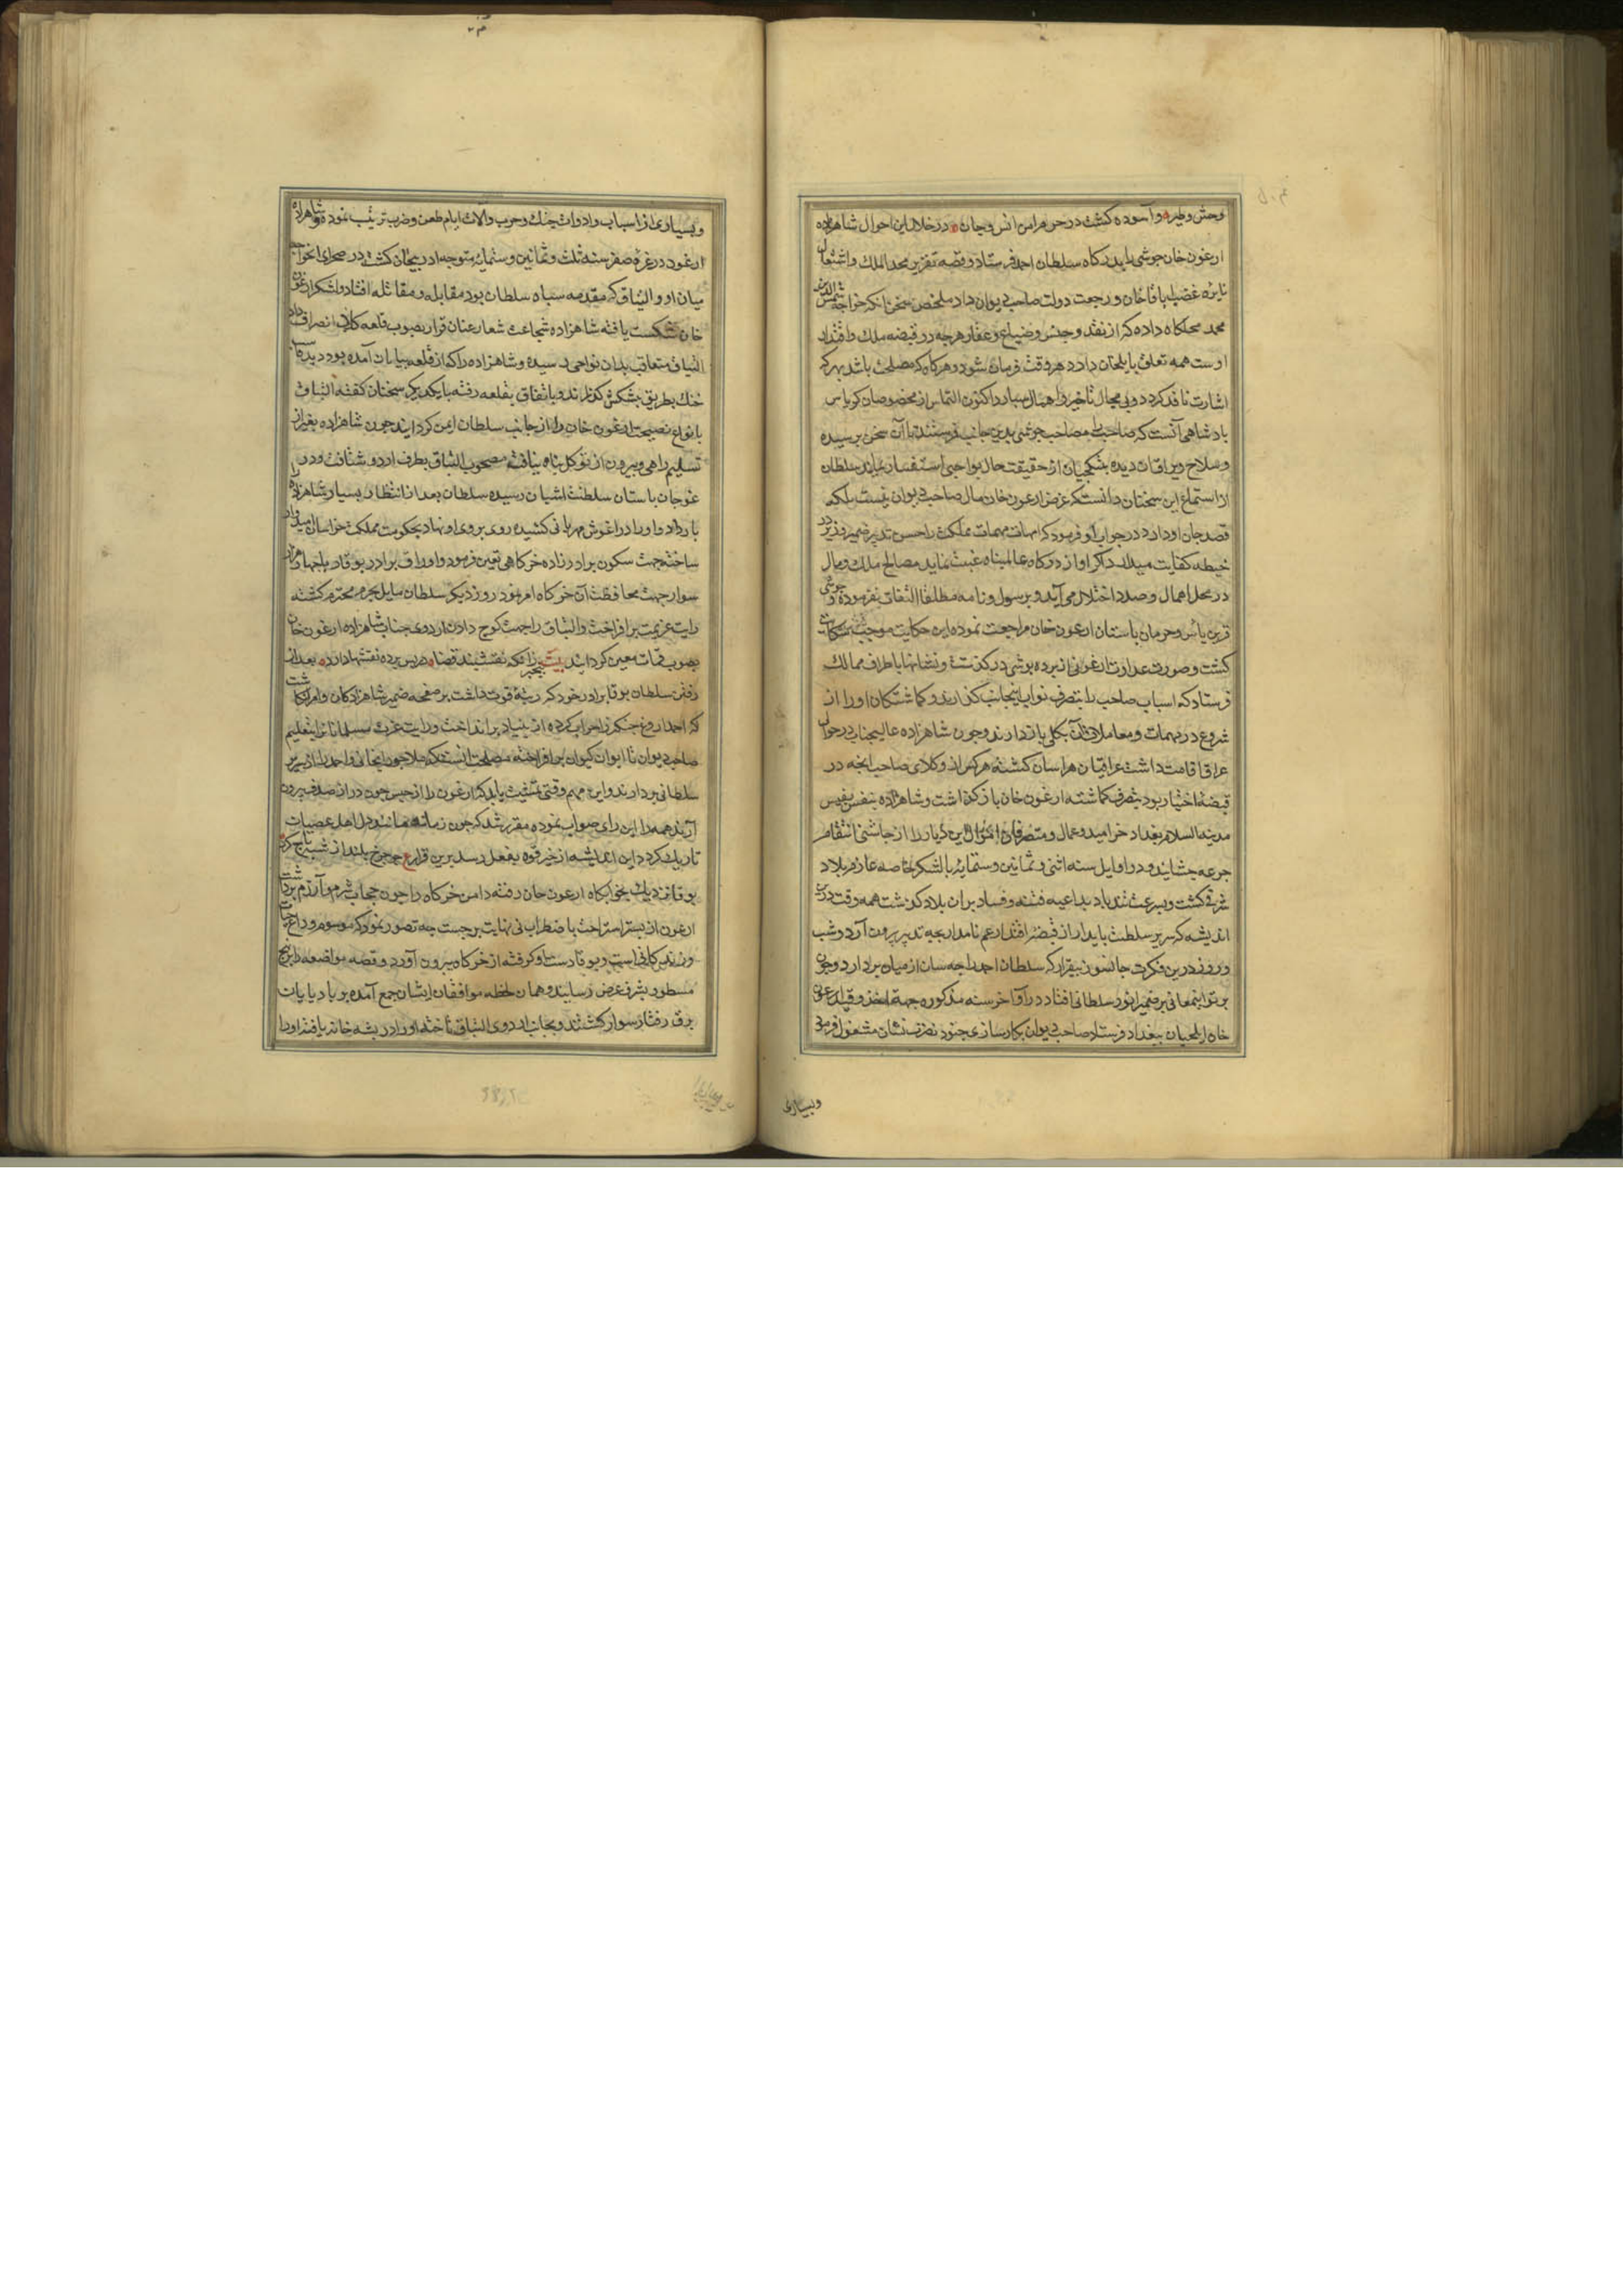 وحش وطیر و آسوده کشت در حرم امن انس و جان در خلال این احوال شاهزاده
ارغون خان جوشی بایدرکاه سلطان احمد فرستاد و قصه تقریر مجد الملک و اشتعال
نایره غضب اباقاخان و رجعت دولت صاحب دیوان داد ملخص سخن انکه خواجه شمس الدین
محمد مجلکاه داده که از نقد و جنس و ضیاع و عقار هرچه در قبضه ملک و اقتدار
اوست همه تعلق بایلخان دارد هر وقت فرمان شود و هرکاه که مصلحت باشد بهرکه
اشارت نافذ کردد و بی مجال تاخیر و اهمال سپارد اکنون التماس از
بادشاهی آنست که صاحب را مصاحب جوشی بدین جانب فرستند تا آن سخن برسیده
از استماع این سخنان دانست که غرض ارغون خان مال صاحب دیوان نیست بلکه
قصد جان او دارد در جواب او فرمود که امهات مهمات مملکت را حسن تدبیر ضمیر وزیر در
حیطه کفایت میدارد اکر او از درکاه عالمپناه غیبت نماید مصالح ملک و مال
در محل اهمال و صدد اختلال می آید و برسول و نامه مطلقا التفات نفرموده و جوشی
قرین یاس و حرمان باستان ارغون خان مراجعت نموده این حکایت موجب
کشت و صورت عداوت ارغونی از پرده بوشی درکذشت و نشانها باطراف ممالک
فرستاد که اسباب صاحب را بتصرف نواب اینجانب کذارند و کماشتکان او را از
شروع در مهمات و معاملات آن بکلی بازدارند و چون شاهزاده عالیجناب در حوالی
عراق اقامت داشت عراقیان هراسان کشته هرکس از وکلای صاحب انچه در
قبضه اختیار بود بتصرف کماشته ارغون خان بازکذاشت و شاهزاده بنفس نفیس
مدینه السلام بغداد خرامید و عمال و متصرفان اموال این دیار را از جاشنی انتقام
جرعه چشانید و در اوایل سنه اثنی و ثمانین و ستمایه با لشکر خاصه عازم بلاد
شرقی کشت و بسرعت تندباد بداعیه فتنه و فساد بران بلاد کذشت همه وقت درین
اندیشه که سریر سلطنت بایدار از قبضه اقتدار عم نامدار بچه تدبیر بیرون آرد و شب
و روز درین فکرت جانسوز بیقرار که سلطان احمد را چه سان از میان بردارد و چون
برتو اینمعانی بر ضمیر انور سلطانی افتاد در اواخر سنه مذکوره جهة اخذ و قید ارغون
خان ایلچیان ببغداد فرستاد صاحب دیوان بکارسازی جنود نصرت نشان مشغول فرمود
وبسیاری
وبسیاری از اسباب و ادوات جنک و حرب و آلات ایام طعن و ضرب ترتیب نموده و شاهزاده
ارغون در غره صفر سنه ثلث و ثمانین و ستمایه متوجه ادربیجان کشته در صحرای
میان او و الیناق که مقدمه سباه سلطان بود مقابله و مقاتله افتاد و لشکر ارغون
خان شکست یافته شاهزاده شجاعت شعار عنان قرار بصوب قلعه کلات انصراف داد
الیناق متعاقب بدان نواحی رسیده و شاهزاده را که از قلعه بیابان آمده بود دید
خنک بطریق بشکش کذرانید و باتفاق بقلعه رفته بایکدیکر سخنان کفته الیناق
بانواع نصیحت ارغون خان را از جانب سلطان ایمن کردانید چون شاهزاده بغیر از
تسلیم راهی و بیرون از توکل بناه نیافت مصحوب الیناق بطرف اردو شتافت و در
غوجان باستان سلطنت اشیان رسیده سلطان بعد از انتظار بسیار شاهزاده را
بار داد و او را در اغوش مهربانی کشیده روی بروی او نهاد بحکومت مملکت خراسان امیدوار
ساخته جهت سکون برادرزاده خرکاهی تعیین فرمود و اوروق برادر بوقا را با چهار هزار
سوار جهت محافظت آن خرکاه امر نمود روز دیکر سلطان مایل بحرم محترم کشته
رایت عزیمت برافراخت و الیناق را جهت کوچ دادن اردوی جناب شاهزاده ارغون خان
بصوب معین کردانید بیت بیخبر زانکه نقشبند قضا در بس برده نقشها دارد بعد از
رفتن سلطان بوقا برادر خود که رتبه قوت داشت بر صفحه ضمیر شاهزادکان و امرا نکاشت
که احمد اروغ جنکیز را خراب کرده از بنیاد برانداخت و رایت عزت مسلمانان را بتعلیم
صاحب دیوان تا ایوان کیوان برافراخته مصلحت آنست که هلاجون ایخانی و احمد را از سریر
سلطانی بردارند و این مهم وقتی تمشیت یابد که ارغون را از حبس چون در از صدف بیرون
آرند همه را این رای صواب نموده مقرر شد که چون زمانه همانند دل اهل عصیان
تاریک کردد این اندیشه از حیز قوه بفعل رسد برین قرار ع چو چرخ بلند از شبه تاج کرد
بوقا نزدیک بخرکاه ارغون خان رفته دامن خرکاه را چون حجاب شرم و آزرم برداشت
ارغون از بستر استراحت باضطراب بی نهایت برجست چه تصور نمود که موسم وداع حیات
و زندکانی است و بوقا دست او کرفته از خرکاه بیرون آورد و قصه مواضعه را بنهج
مسطور بشرف عرض رسانید و همان لحظه موافقان ایشان جمع آمده بر بادبایان
برق رفتار سوار کشتند و بجانب اردوی الیناق تاخته او را در بشه خانه یافتند او را